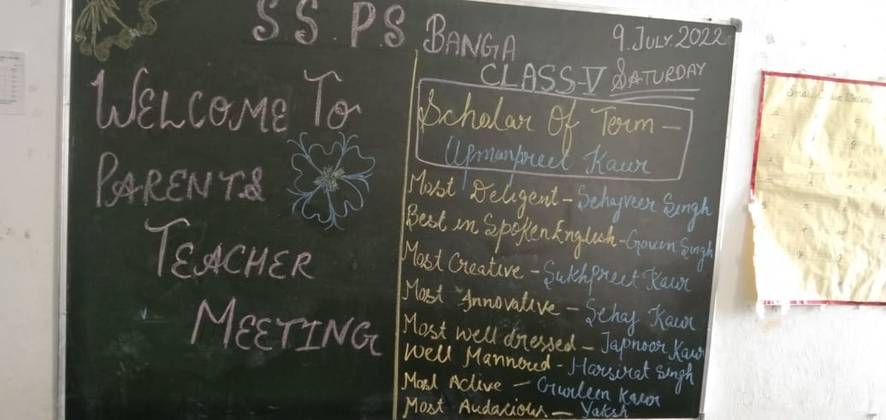 S.S.P.S BANGA
9.JULY.2022
CLASS-V SATURDAY
WELCOME TO
PARENTS
TEACHER
MEETING
Scholar Of Term -
Upmanpreet Kaur
Most Deligent - Sehajveer Singh
Best in Spoken English - Goven Singh
Most Creative - Sukhpreet Kaur
Most Innovative - Sehaj Kaur
Most well dressed - Japnoor Kaur
Well Mannered - Harsirat Singh
Most Active - Gurleen Kaur
Most Audacious - Yaksh